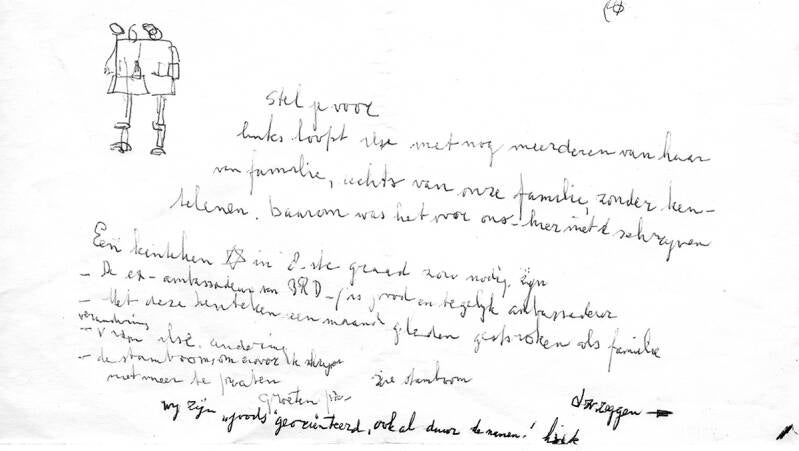 Stel je voor
links loopt Ilse met nog meerderen van haar
van familie, rechts van onze familie, zonder ken-
tekenen. Daarom was het voor ons - hier niet te schrijven
Een kenteken ✡ in 2-ste graad zou nodig zijn
- De ex-ambassadeur van BRD - is jood en tegelijk ambassadeur
- Met deze kenteken een maand geleden gesproken als familie
verandering
- v mijn Ilse.
- de stamboom om erover te
niet meer te praten zie stamboom
groeten
d.w.z. zeggen →
wij zijn „joods" georiënteerd, ook al door de namen!